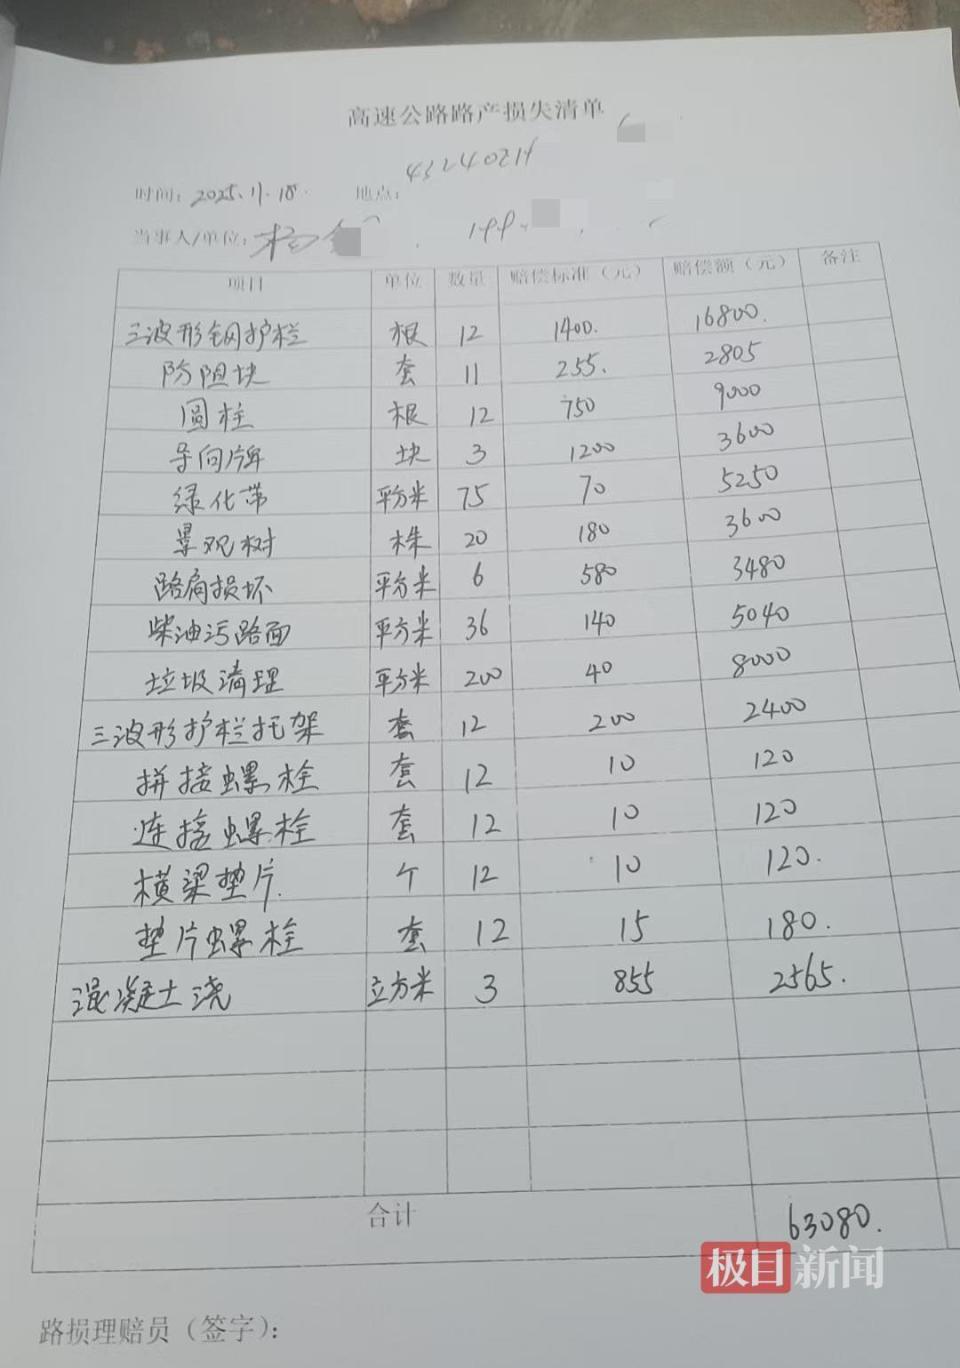 高速公路路产损失清单
时间: 2025.11.18. 地点: 4324021
当事人/单位: 杨
项目 单位 数量 赔偿标准（元） 赔偿额（元） 备注
三波形钢护栏 根 12 1400. 16800.
防阻块 套 11 255. 2805
圆柱 根 12 750 9000
导向牌 块 3 1200 3600
绿化带 平方米 75 70 5250
景观树 株 20 180 3600
路肩损坏 平方米 6 580 3480
柴油污路面 平方米 36 140 5040
垃圾清理 平方米 200 40 8000
三波形护栏托架 套 12 200 2400
拼接螺栓 套 12 10 120
连接螺栓 套 12 10 120
横梁垫片. 个 12 10 120.
垫片螺栓 套 12 15 180.
混凝土浇 立方米 3 855 2565.
合计 63080.
极目新闻
路损理赔员（签字）: